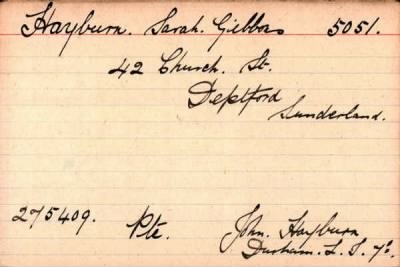 Hayburn. Sarah. Gibbons 5051.
42 Church. St.
Deptford
Sunderland.
275409. Pte. John. Hayburn
Durham. L. I. 7º.